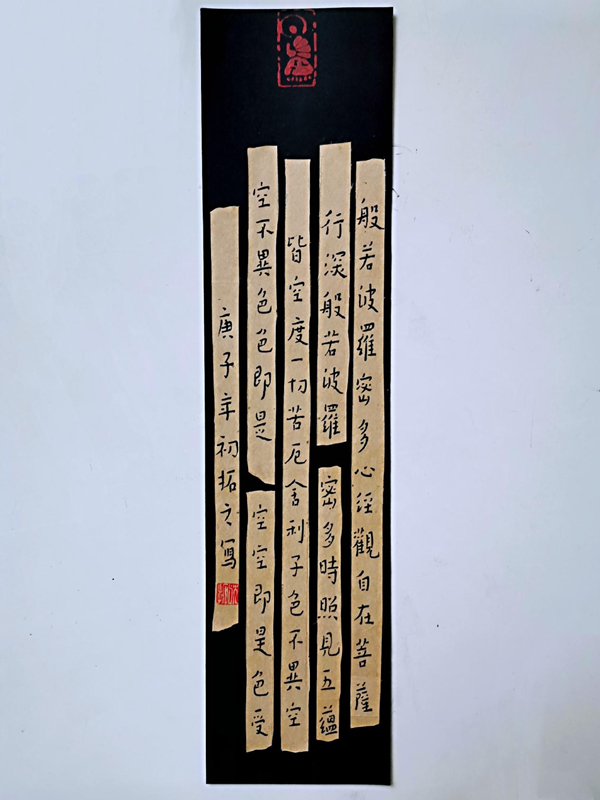 般若波羅密多心經觀自在菩薩
行深般若波羅密多時照見五蘊
皆空度一切苦厄舍利子色不異空
空不異色色即是空空即是色受
庚子年初拓之寫